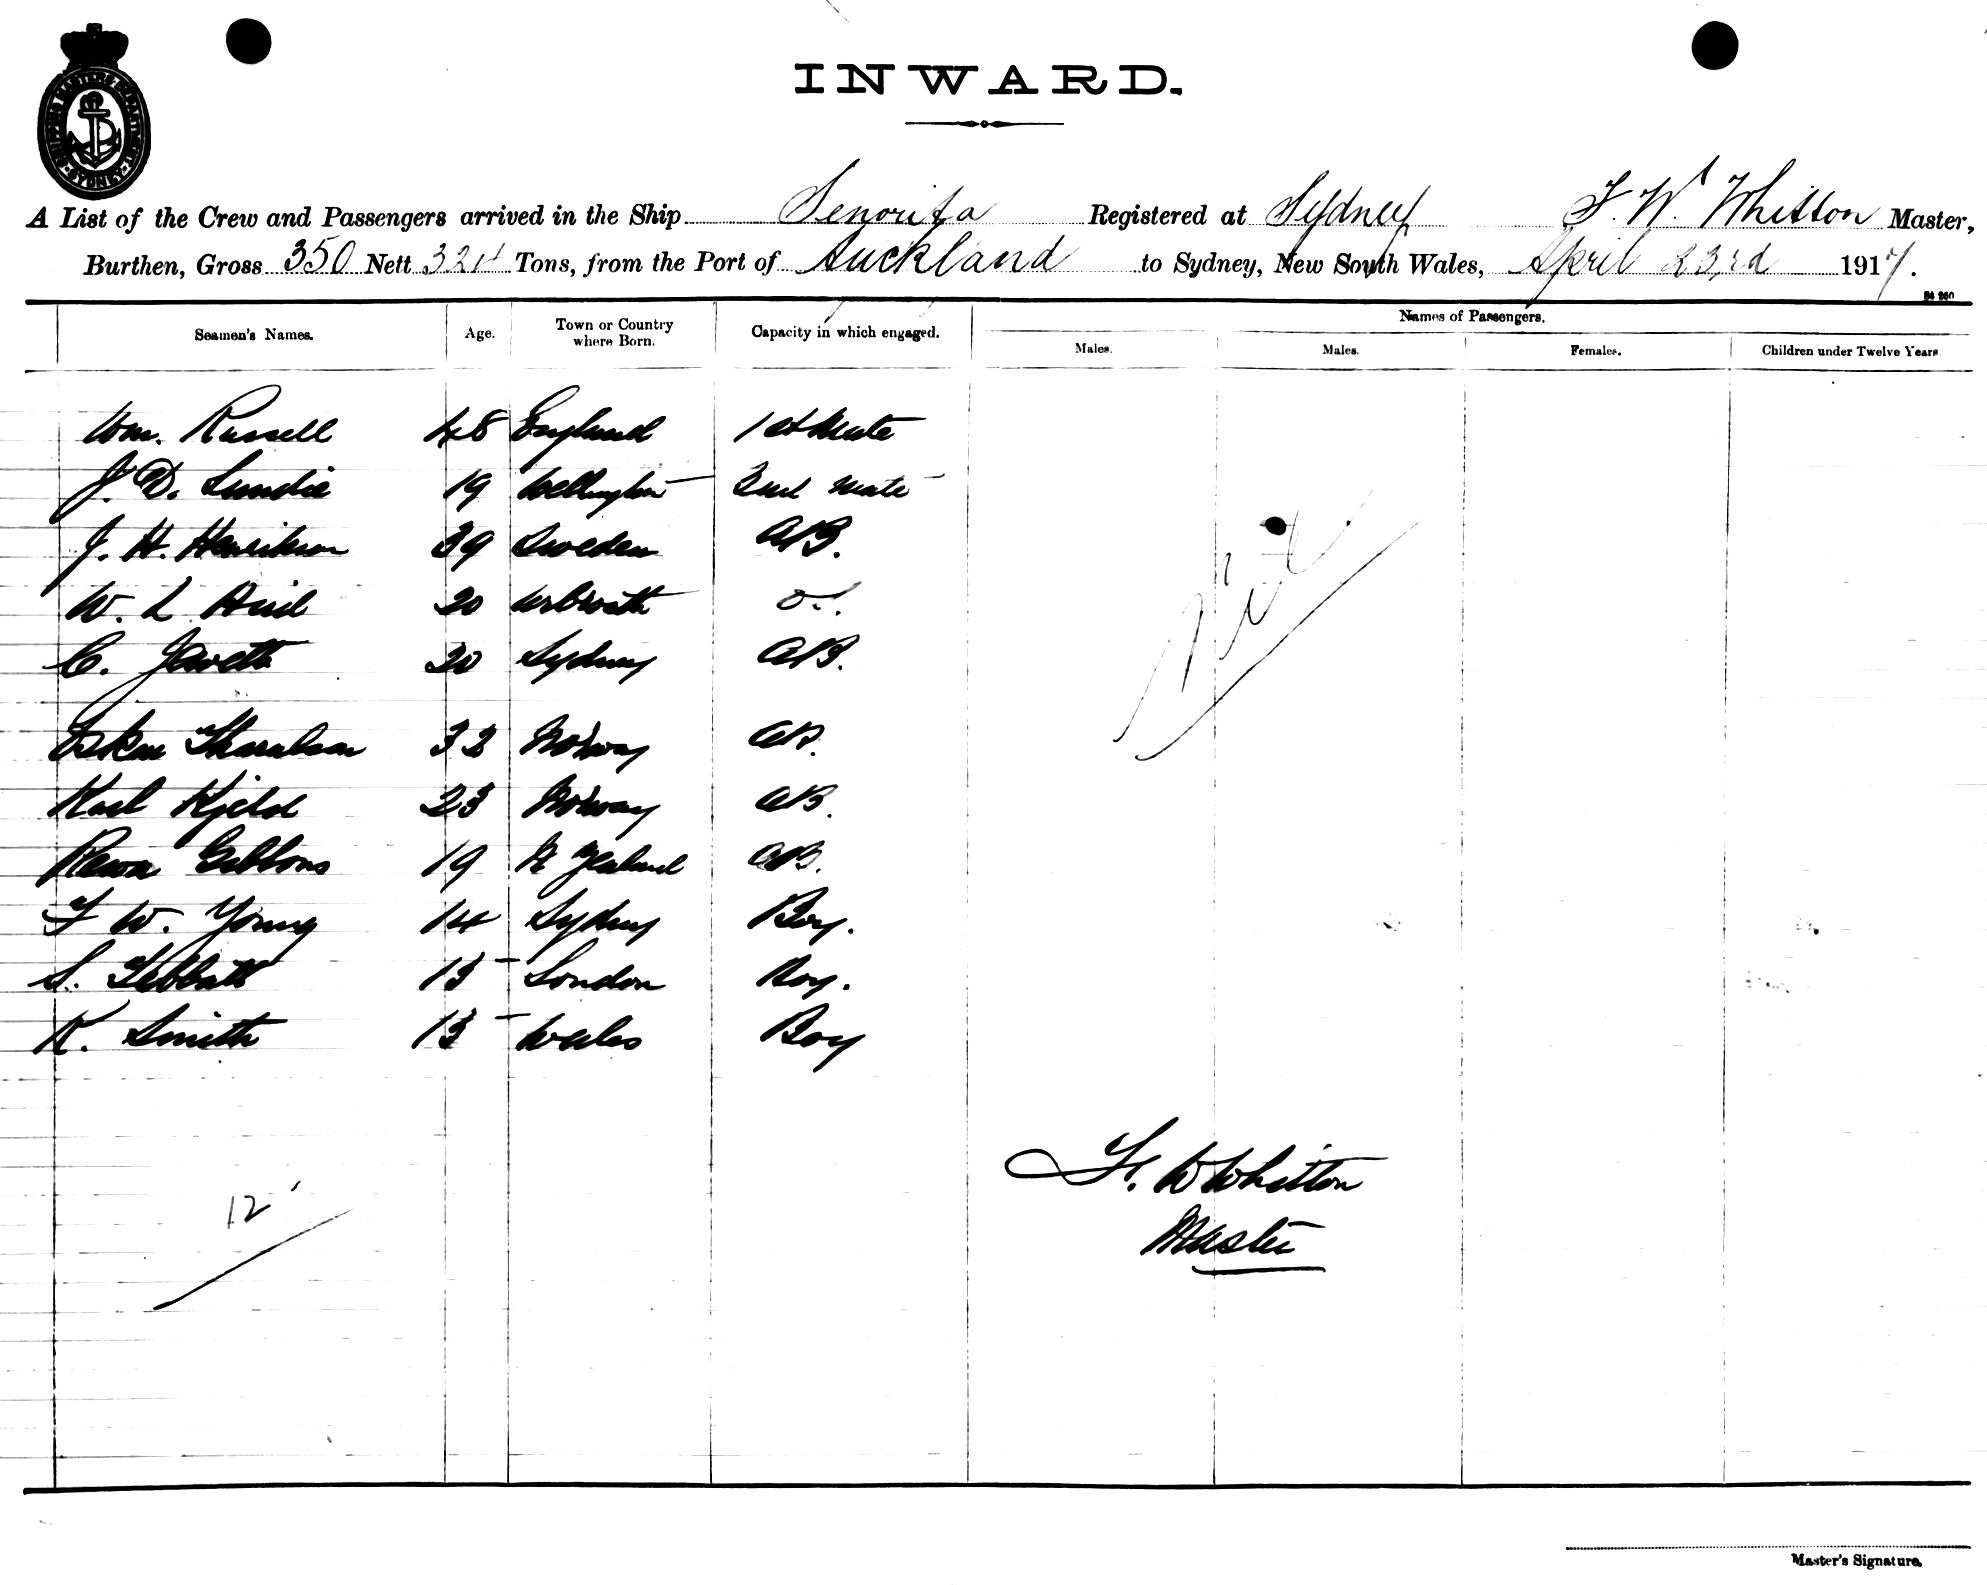 SHIPPING MASTER'S DEPARTMENT
SYDNEY
INWARD.
A List of the Crew and Passengers arrived in the Ship Senorita Registered at Sydney F. W. Whitton Master,
Burthen, Gross 350 Nett 324 Tons, from the Port of Auckland to Sydney, New South Wales, April 23rd 1917.
Seamen's Names. Age. Town or Country where Born. Capacity in which engaged. Names of Passengers.
Males. Males. Females. Children under Twelve Years
Wm. Russell 48 England 1st Mate
J. D. Lundie 19 Wellington 2nd Mate
J. H. Henrikson 39 Sweden AB.
W. L 20 Arbroath
C. 20 Sydney AB.
Oskar 32 Norway AB.
Karl Kjeld 23 Norway AB.
Rewa Gibbons 19 N Zealand AB.
F W. Young 14 Sydney Boy.
S. Tebbutt 15 London Boy.
K. Smith 15 Wales Boy
Nil
F. W Whitton
Master
12
Master's Signature.